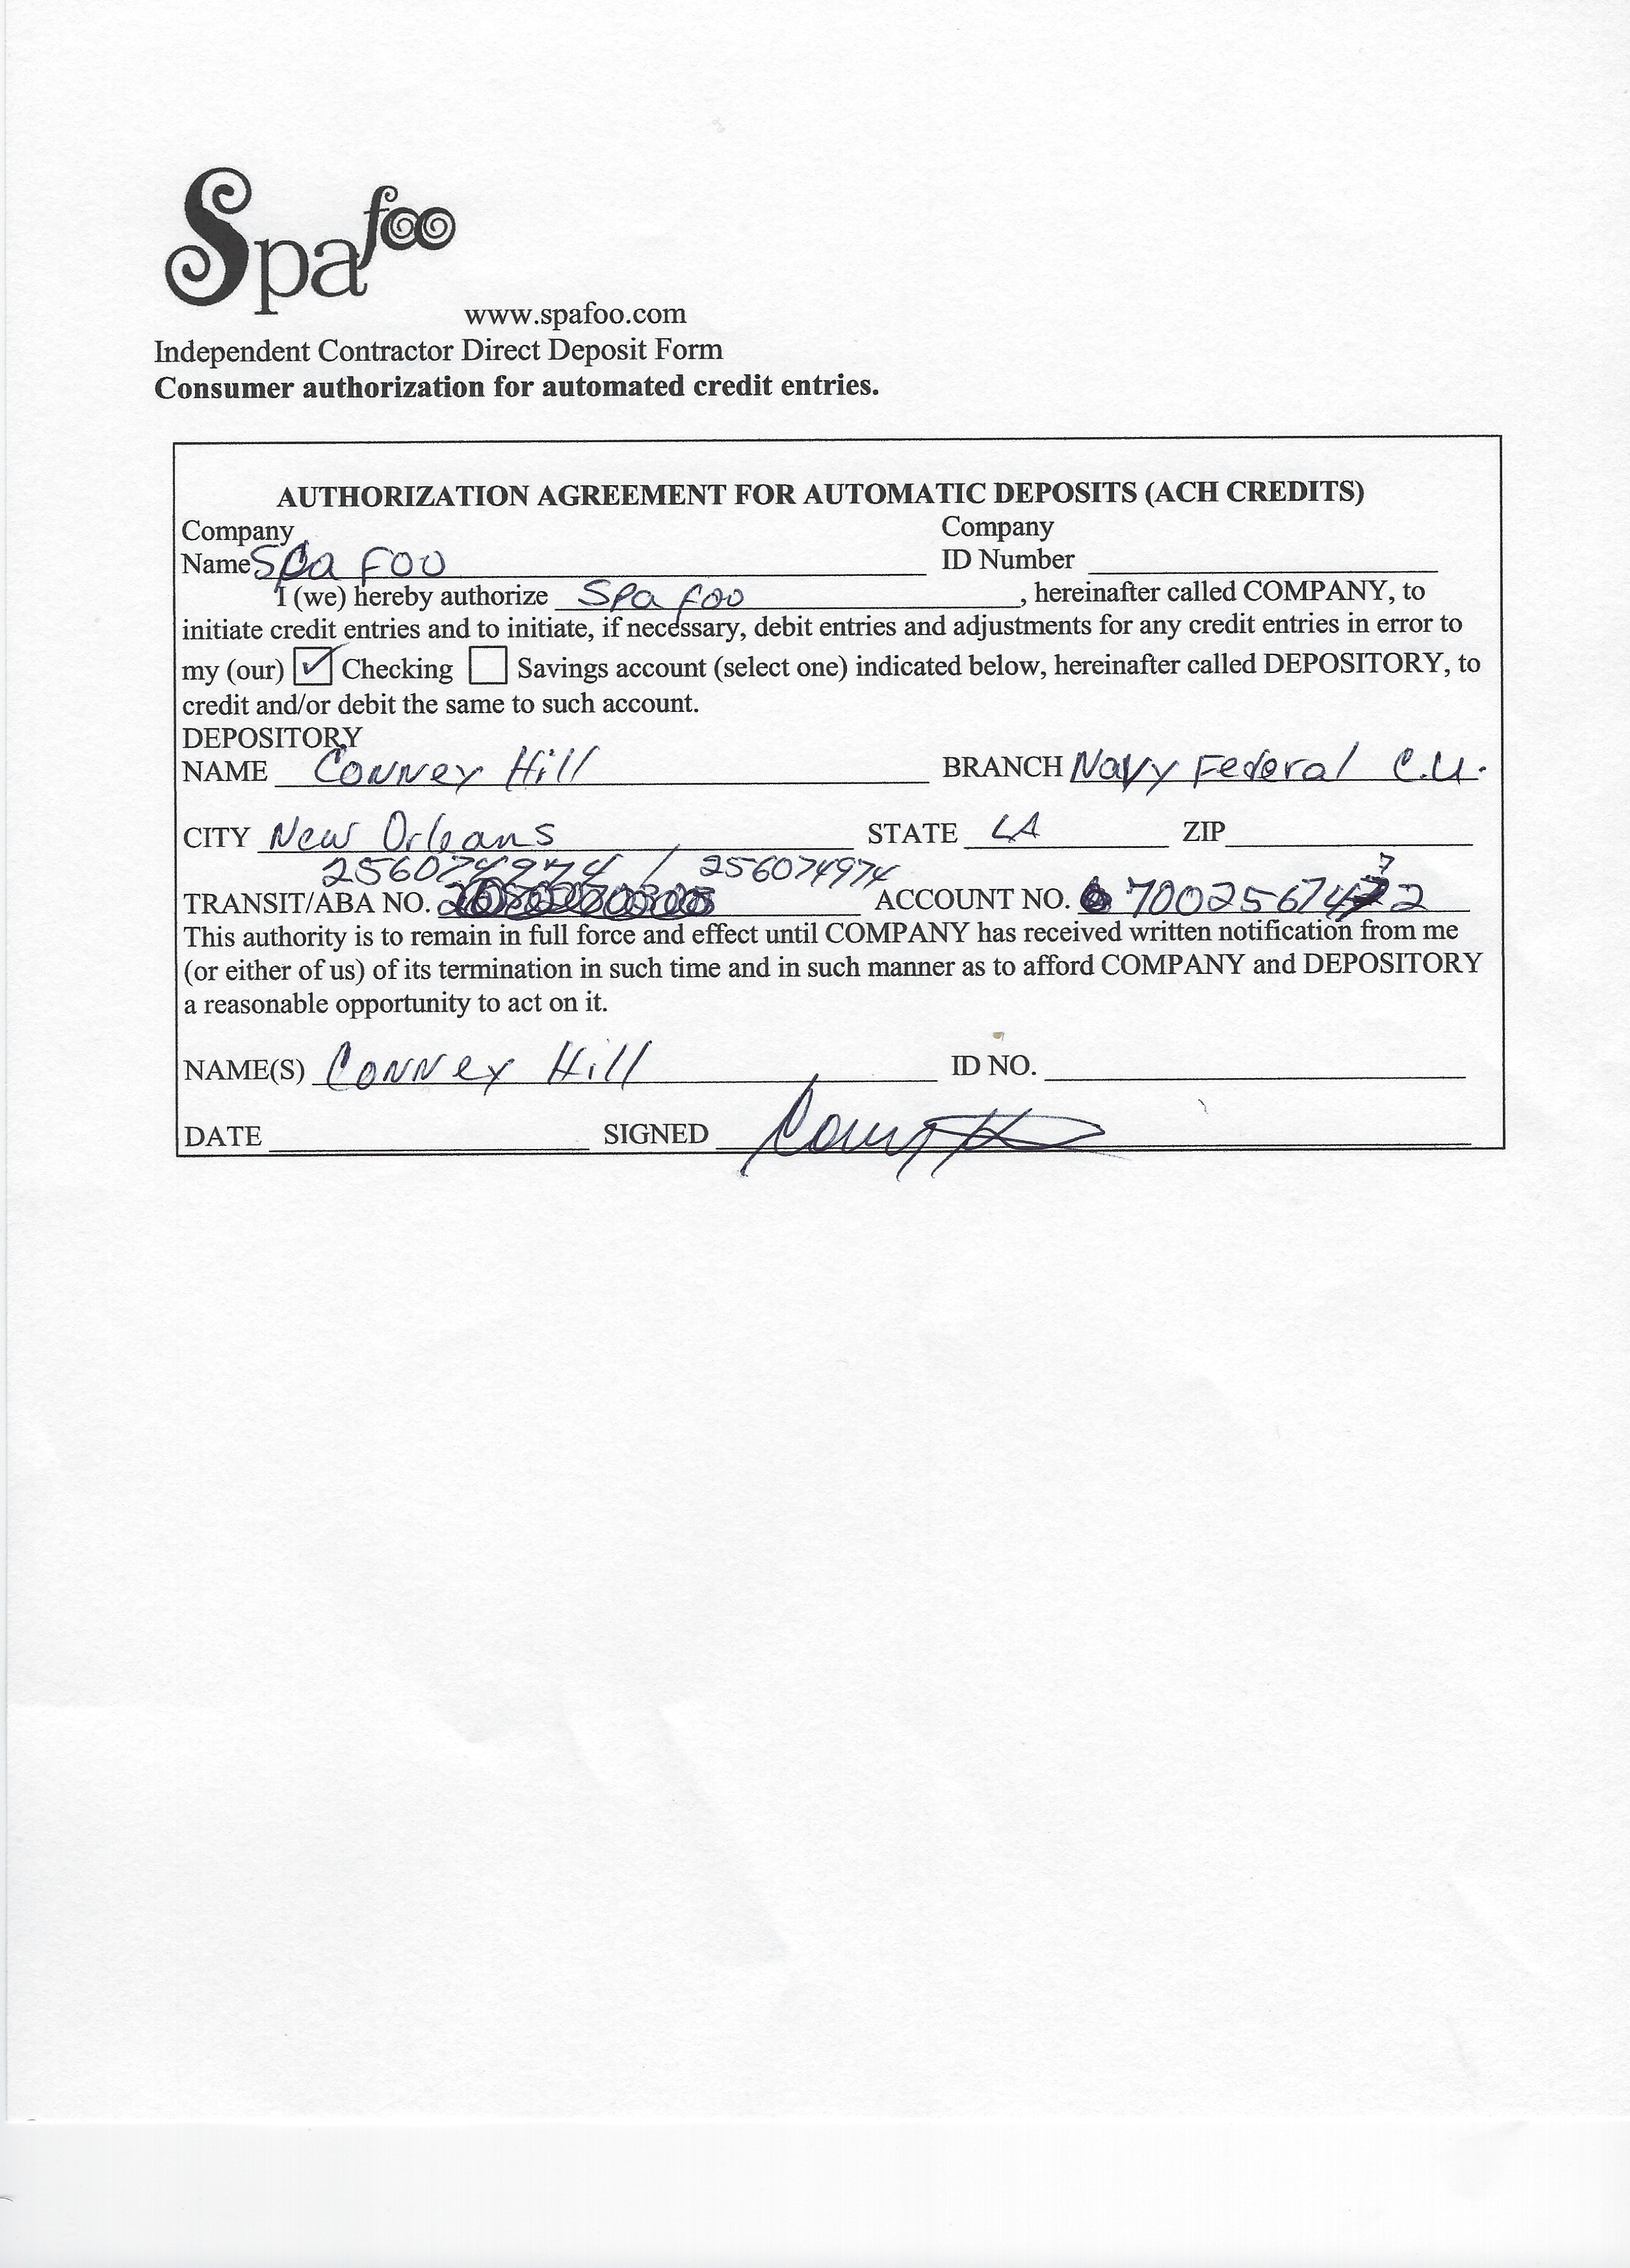 Spa foo
www.spafoo.com
Independent Contractor Direct Deposit Form
Consumer authorization for automated credit entries.
AUTHORIZATION AGREEMENT FOR AUTOMATIC DEPOSITS (ACH CREDITS)
Company Company
Name Spa Foo ID Number
I (we) hereby authorize Spa foo, hereinafter called COMPANY, to
initiate credit entries and to initiate, if necessary, debit entries and adjustments for any credit entries in error to
my (our) Checking Savings account (select one) indicated below, hereinafter called DEPOSITORY, to
credit and/or debit the same to such account.
DEPOSITORY
NAME Conney Hill BRANCH Navy Federal C.U.
CITY New Orleans STATE LA ZIP
256074974 / 256074974 7
TRANSIT/ABA NO. ACCOUNT NO.
This authority is to remain in full force and effect until COMPANY has received written notification from me
(or either of us) of its termination in such time and in such manner as to afford COMPANY and DEPOSITORY
a reasonable opportunity to act on it.
NAME(S) Conney Hill ID NO.
DATE SIGNED